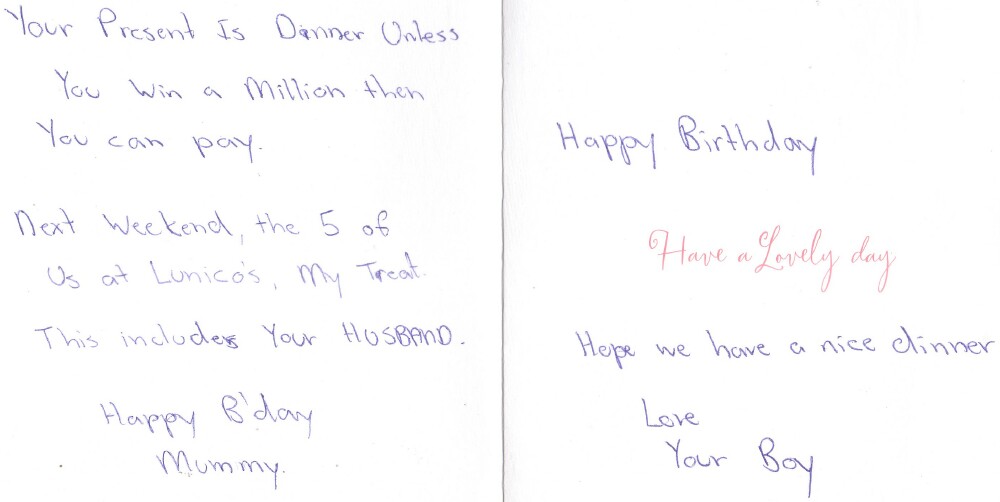 Your Present Is Dinner Unless
You Win a Million then
You can pay.
Next Weekend, the 5 of
Us at Lunico's, My Treat.
This includes Your HUSBAND.
Happy B'day
Mummy.
Happy Birthday
Have a Lovely day
Hope we have a nice dinner
Love
Your Boy